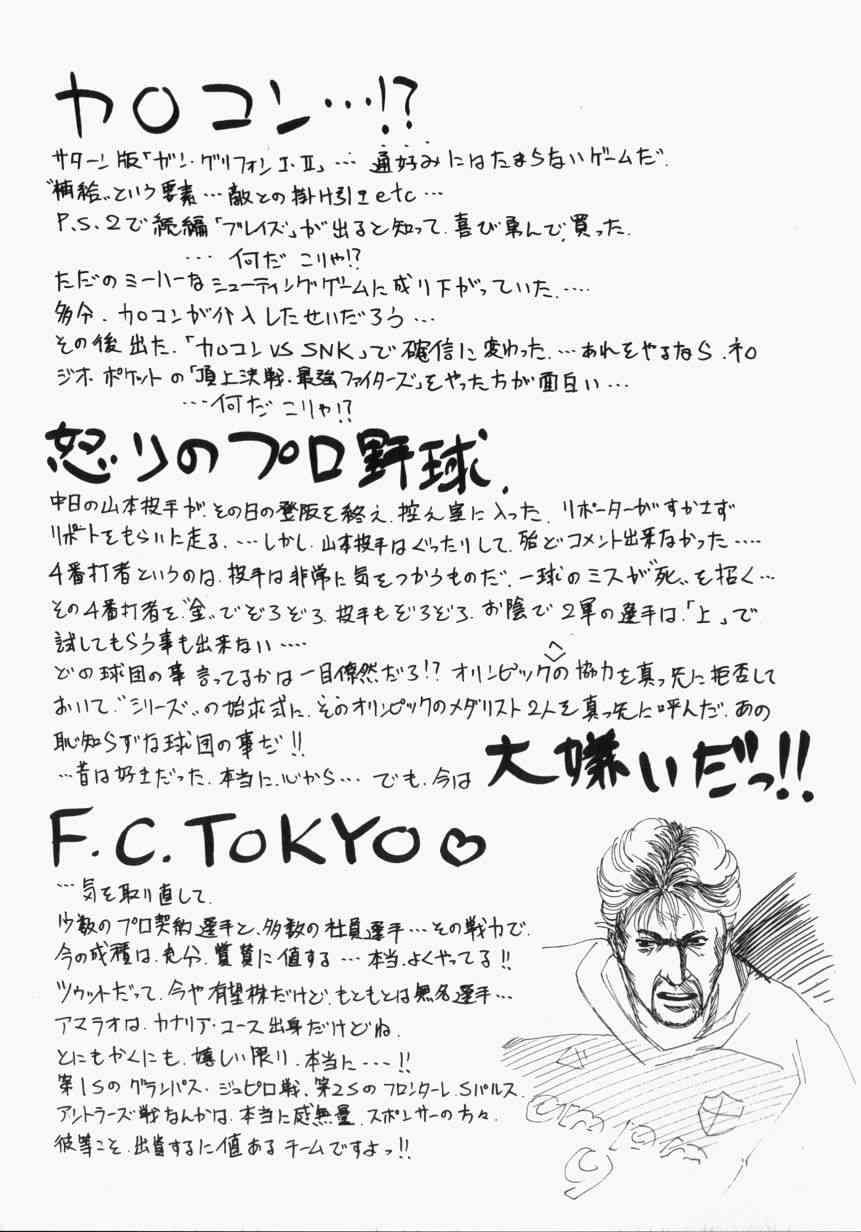 カロコン…!?
サターン版「ガン・グリフォンⅠ・Ⅱ」… 通好みにはたまらないゲームだ.
〝補給〟という要素…敵との掛け引きetc…
P.S.2で続編「ブレイズ」が出ると知って、喜び勇んで、買った.
… 何だ こりゃ!?
ただのミーハーなシューティングゲームに成り下がっていた.…
多分、カロコンが介入したせいだろう…
その後出た、「カロコンVS SNK」で確信に変わった.…あれをやるなら、ネオ
ジオ、ポケットの「頂上決戦・最強ファイターズ」をやった方が面白い…
…何だ こりゃ!?
怒りのプロ野球.
中日の山本投手が、その日の登板を終え、控え室に入った、リポーターがすかさず
リポートをもらいに走る、…しかし、山本投手はぐったりして、殆どコメント出来なかった…
4番打者というのは、投手は非常に気をつかうものだ、一球のミスが〝死〟を招く…
その4番打者を〝金〟でぞろぞろ、投手もぞろぞろ、お陰で2軍の選手は、「上」で
試してもらう事も出来ない…
どの球団の事言ってるかは一目僚然だろ!? オリンピックへの協力を真っ先に拒否して
おいて、〝シリーズ〟の始求式に、そのオリンピックのメダリスト2人を真っ先に呼んだ、あの
恥知らずな球団の事だ!!
…昔は好きだった、本当に、心から… でも、今は 大嫌いだっ!!
F.C.TOKYO♡
…気を取り直して、
少数のプロ契約選手と、多数の社員選手…その戦力で、
今の成積は、充分、賞賛に値する…本当、よくやってる!!
ツゥットだって、今や有望株だけど、もともとは無名選手…
アマラオは、カナリア・ユース出身だけどね、
とにもかくにも、嬉しい限り、本当に…!!
第1Sのグランパス・ジュビロ戦、第2Sのフロンターレ、Sパルス、
アントラーズ戦なんかは、本当に感無量、スポンサーの方々、
彼等こそ、出資するに値あるチームですよっ!!
am/pm
9